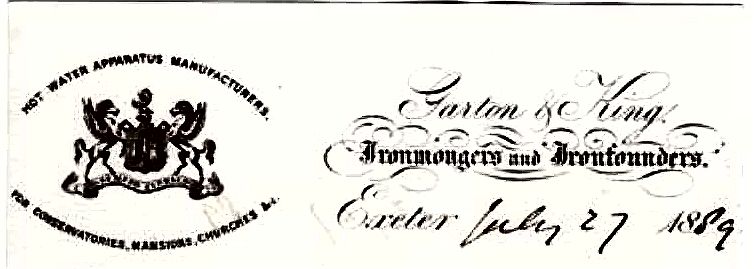 HOT WATER APPARATUS MANUFACTURERS.
FOR CONSERVATORIES, MANSIONS, CHURCHES &c.
Garton & King,
Ironmongers and Ironfounders.
Exeter July 27 1889